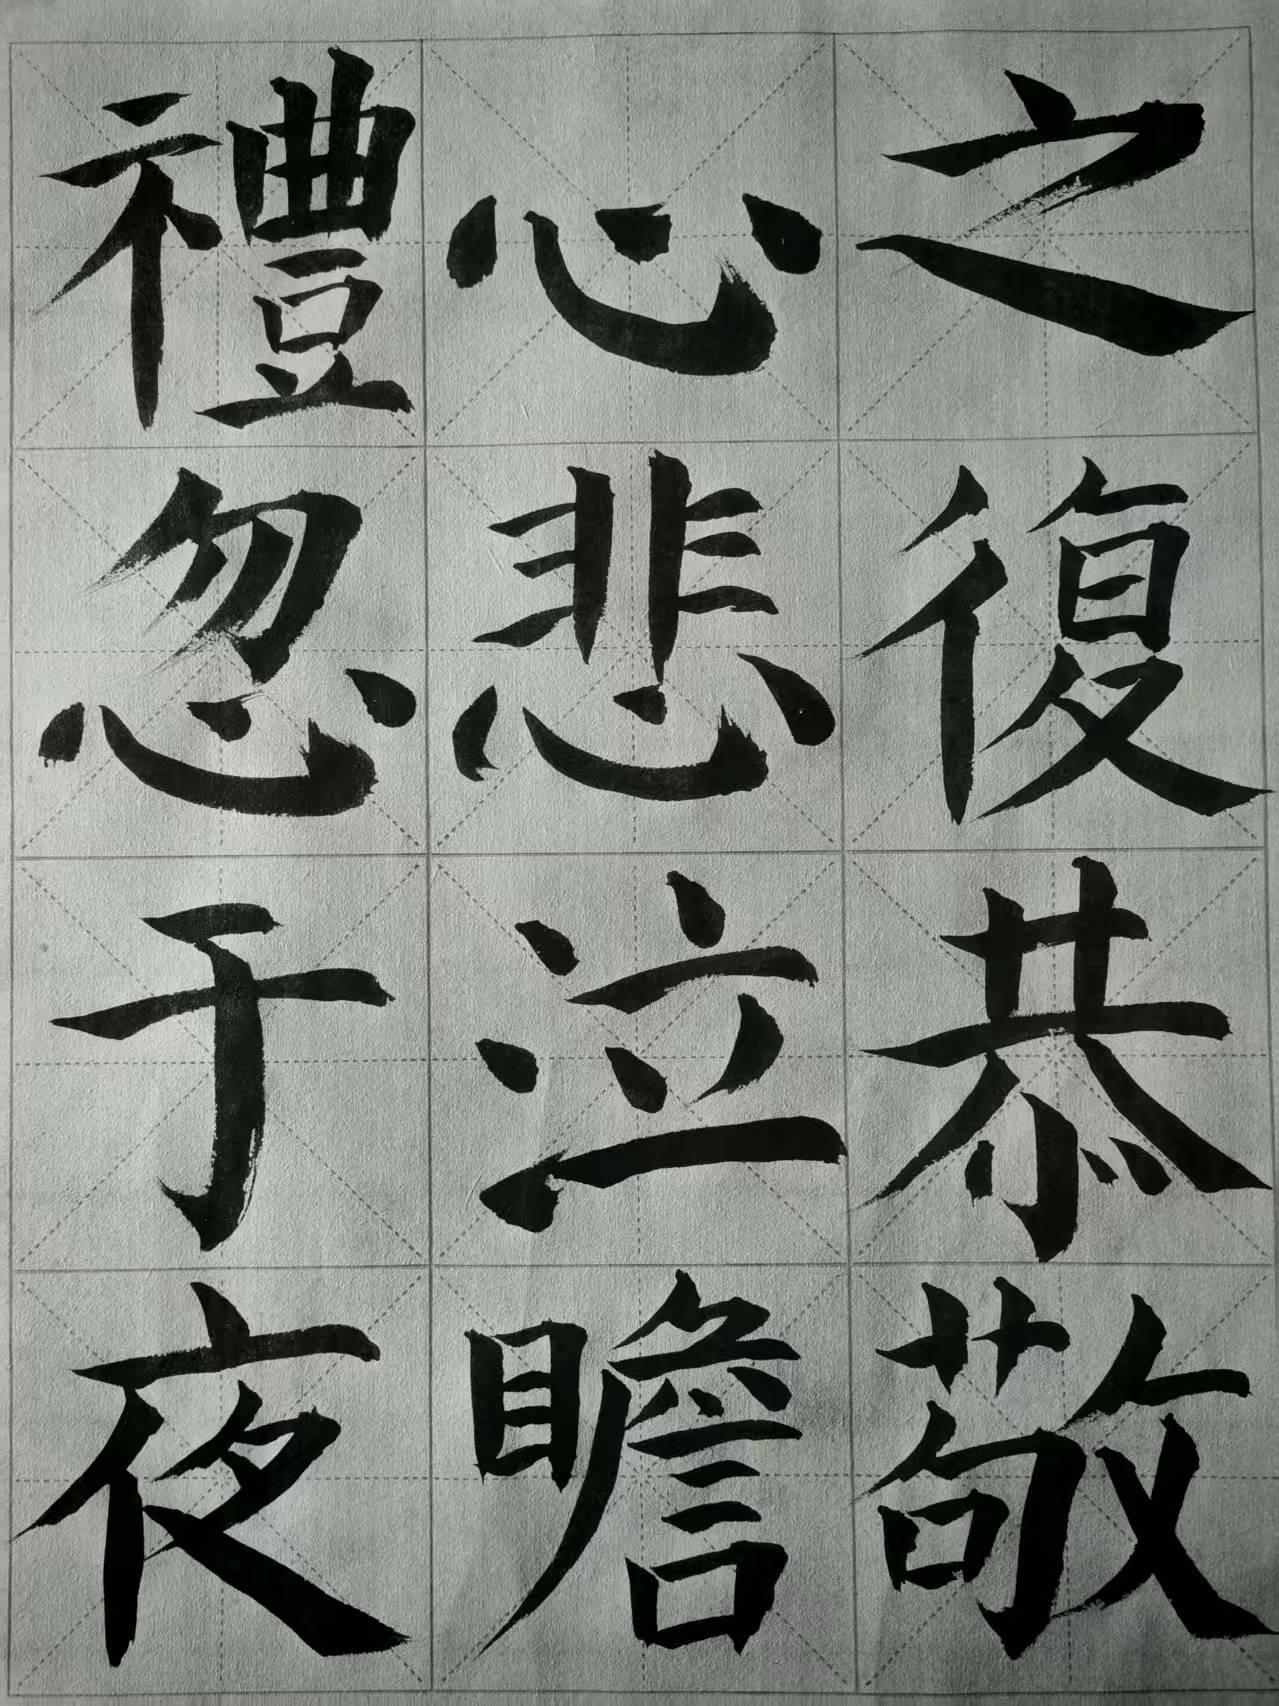 之復恭敬
心悲泣瞻
禮忽于夜